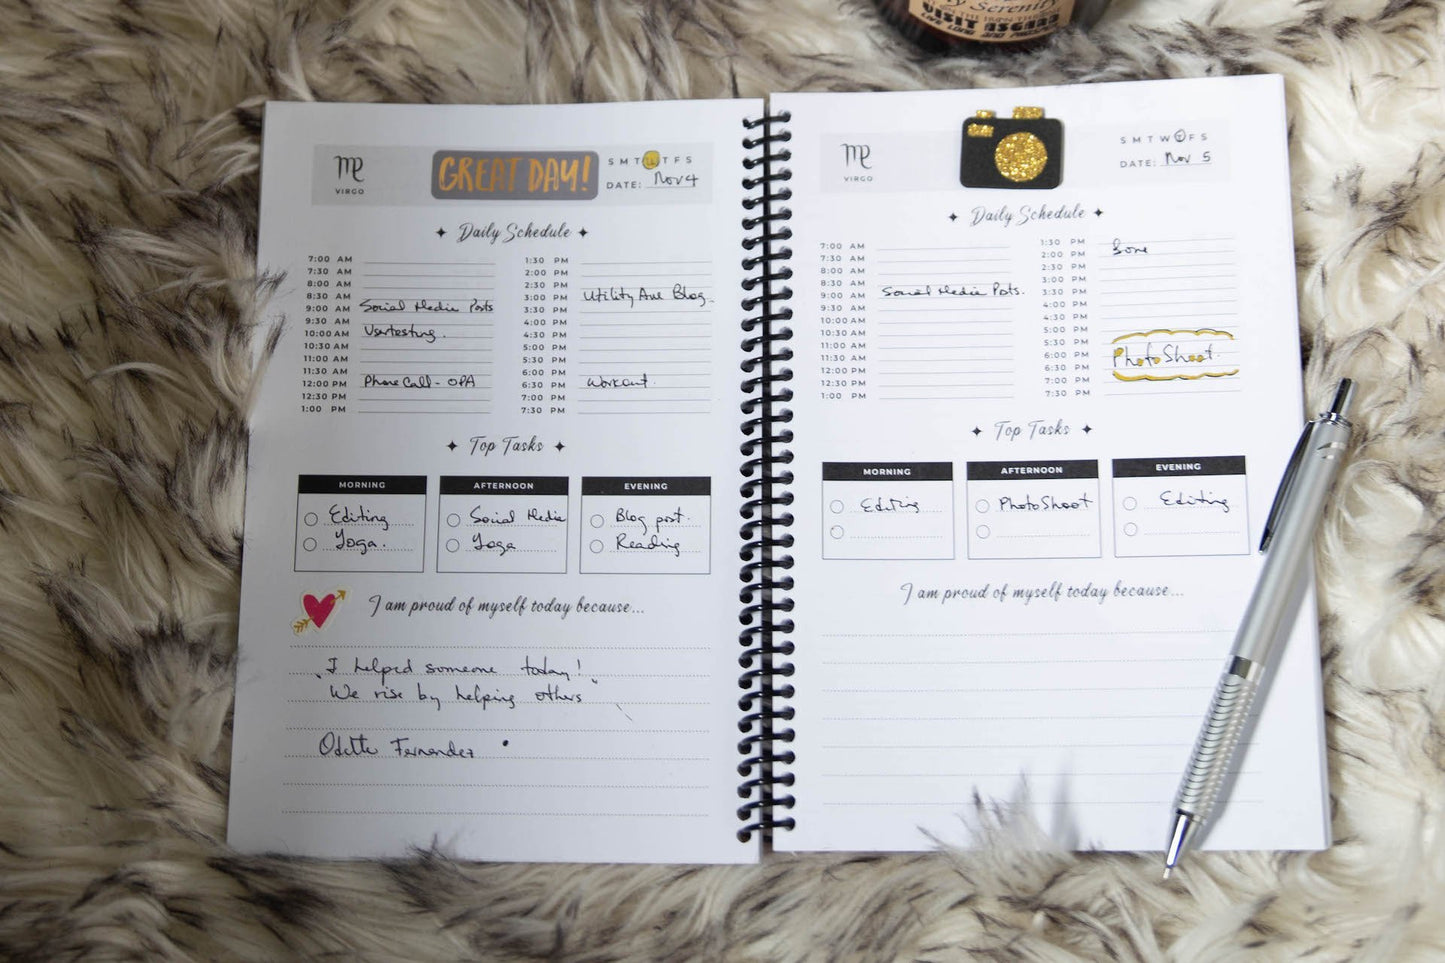 by Serenity
VISIT ASGARD
VIRGO
GREAT DAY!
S M T W T F S
DATE: Nov 4
Daily Schedule
7:00 AM
7:30 AM
8:00 AM
8:30 AM
9:00 AM Social Media Posts
9:30 AM
10:00 AM Usertesting.
10:30 AM
11:00 AM
11:30 AM
12:00 PM Phone Call - OPA
12:30 PM
1:00 PM
1:30 PM
2:00 PM
2:30 PM
3:00 PM Utility Ave Blog.
3:30 PM
4:00 PM
4:30 PM
5:00 PM
5:30 PM
6:00 PM
6:30 PM Workout.
7:00 PM
7:30 PM
Top Tasks
MORNING
Editing
Yoga.
AFTERNOON
Social Media
Yoga
EVENING
Blog post.
Reading
I am proud of myself today because...
I helped someone today!
"We rise by helping others"
Odette Fernandez
VIRGO
S M T W T F S
DATE: Nov 5
Daily Schedule
7:00 AM
7:30 AM
8:00 AM
8:30 AM
9:00 AM Social Media Posts.
9:30 AM
10:00 AM
10:30 AM
11:00 AM
11:30 AM
12:00 PM
12:30 PM
1:00 PM
1:30 PM
2:00 PM
2:30 PM
3:00 PM
3:30 PM
4:00 PM
4:30 PM
5:00 PM
5:30 PM
6:00 PM PhotoShoot.
6:30 PM
7:00 PM
7:30 PM
Top Tasks
MORNING
Editing
AFTERNOON
PhotoShoot
EVENING
Editing
I am proud of myself today because...